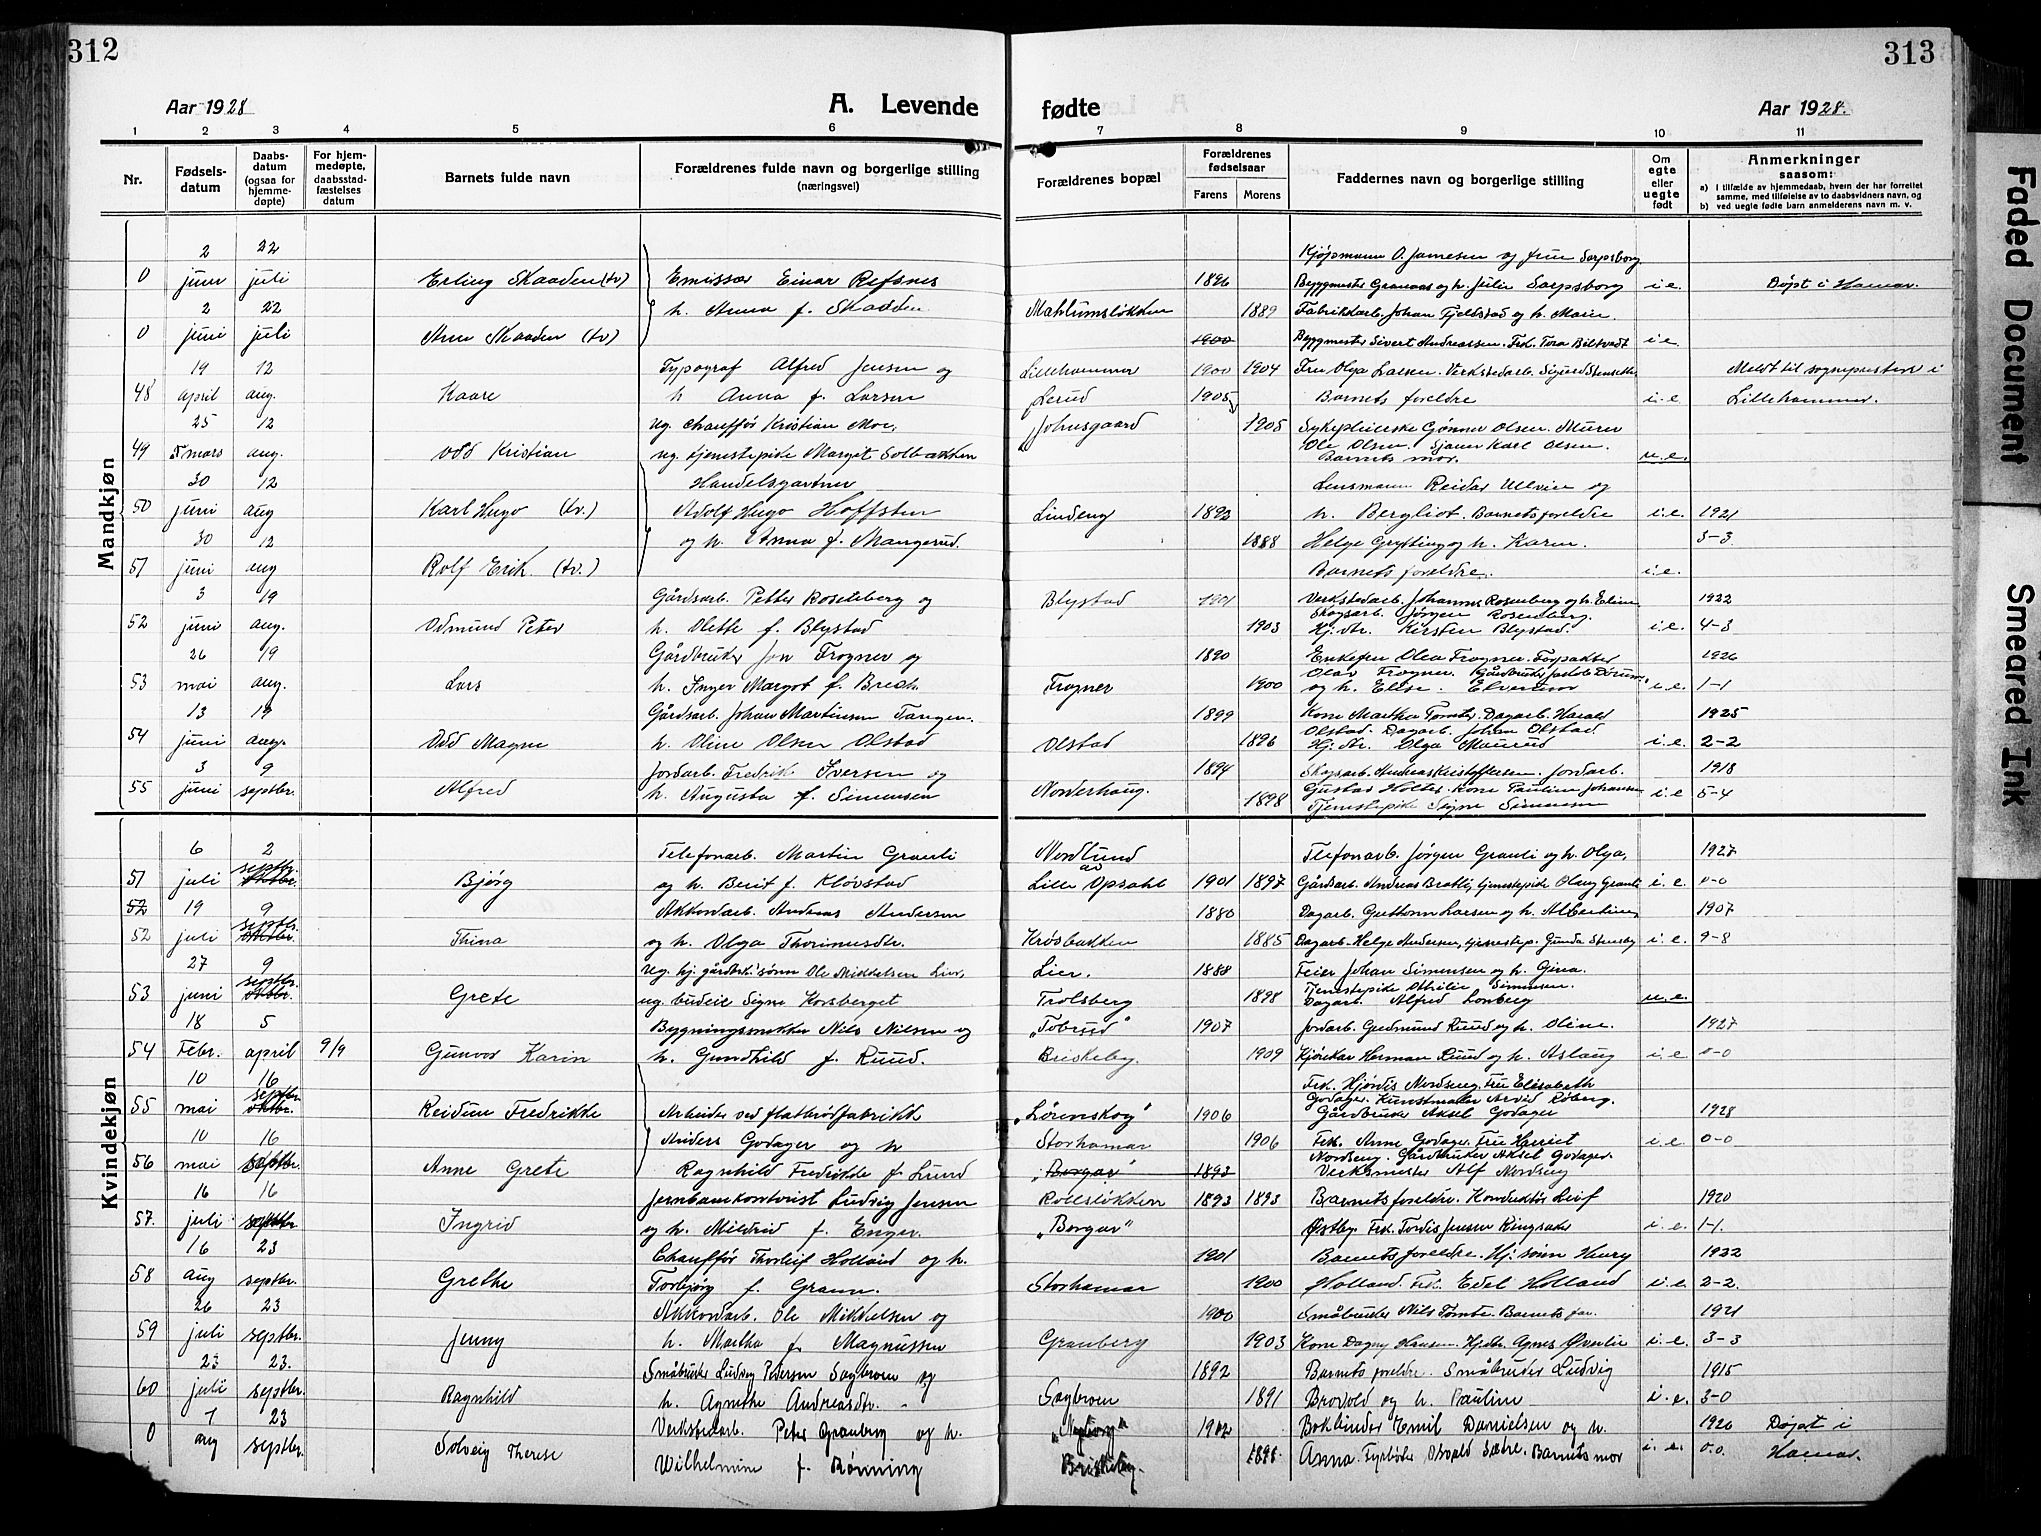 312
313
Aar 1928
A. Levende
fødte
Aar 1928.
1 2 3 4 5 6 7 8 9 10 11
Nr.
Fødselsdatum
Daabsdatum (ogsaa for hjemmedøpte)
For hjemmedøpte, daabsstadfæstelses datum
Barnets fulde navn
Forældrenes fulde navn og borgerlige stilling (næringsvei)
Forældrenes bopæl
Forældrenes fødselsaar
Farens Morens
Faddernes navn og borgerlige stilling
Om egte eller uegte født
Anmerkninger saasom:
a) i tilfælde av hjemmedaab, hvem der har forrettet samme, med tilføielse av to daabsvidners navn, og
b) ved uegte fødte barn anmelderens navn m. v.
Mandkjøn
2 22
0 juni juli Erling Skaaden (tv) Emissær Einar Refsnes 1896 i.e. Døpt i Hamar.
2 22 h. Anna f. Skaaden Mahlumsløkken 1889 Fabrikkarb. Johan Fjeldstad og h. Marie.
0 juni juli Arne Skaaden (tv) 1900 i.e.
19 12 Typograf Alfred Jensen og Lillehammer 1900 1904 Meldt til sognepresten i
48 april aug. Kaare h. Anna f. Larsen Lerud 1905 Barnets foreldre i.e. Lillehammer.
25 12 ug. chauffør Kristian Moe, Johnsgaard 1905 Sykepleierske Gønner Olsen. Murer
49 mars aug. Odd Kristian ug. tjenestepike Margit Solbakken Ole Olsen. Sjauer Karl Olsen. Barnets mor. u.e.
30 12 Handelsgartner Lensmann Reidar Ullvin og
50 juni aug Karl Hugo (tv.) Adolf Hugo Hoffsten Lindeng 1892 h. Bergliot. Barnets foreldre i.e. 1921
30 12 og h. Anna f. Mangerud. 1888 Helge Grytting og h. Karen. 3-3
51 juni aug Rolf Erik. (tv.) Barnets foreldre. i.e.
3 19 Gårdsarb. Petter Rosenberg og Blystad 1901 Verkstedarb. Johannes Rosenberg og h. Eline 1922
52 juni aug. Odmund Peter h. Olette f. Blystad 1903 Skogsarb. Jørgen Rosenberg. Hj. dtr. Kirsten Blystad. i.e. 4-3
26 19 Gårdbruker Jon Frogner og 1890 Enkefru Olea Frogner. Forpakter 1926
53 mai aug. Lars h. Inger Margot f. Brech. Frogner 1900 Olav Frogner. og h. Elise. Elverum i.e. 1-1
13 19 Gårdsarb. Johan Martinsen Tangen. 1899 Kone Martha Tomter. Dagarb. Harald 1925
54 juni aug. Odd Magne h. Oline Olsen Olstad Olstad 1896 Olstad. Dagarb. Johan Olstad Hj. dtr. Olga Maurud i.e. 2-2
3 9 Jordarb. Fredrik Iversen og 1894 Skogsarb. Andreas Kristoffersen. Jordarb. 1918
55 juni septbr. Alfred h. Augusta f. Simensen Norderhaug. 1898 Gustav Holter. Kone Pauline Johansen Tjenestepike Signe Simensen i.e 5-4
Kvindekjøn
6 2 Telefonarb. Martin Granli Nordlund av Telefonarb. Jørgen Granli og h. Olga, 1927
51 juli septbr. oktbr. Bjørg og h. Berit f. Kløvstad Lille Opsahl 1901 1897 Gårdsarb. Andreas Bratli, tjenestepike Olaug Granli i.e. 0-0
52 19 9 Akkordarb. Andreas Andersen 1880 Dagarb. Guttorm Larsen og h. Albertine 1907
52 juli septbr. oktbr. Thina og h. Olga Thorinusdtr. Krosbakken 1885 Dagarb. Helge Andersen, tjenestep. Gunda Stensby i.e. 9-8
27 9 ug. hj. gårdbr. sønn Ole Mikkelsen Lier, Lier. 1888 Feier Johan Simensen og h. Gina.
53 juni septbr. oktbr. Grete ug. budeie Signe Korsberget Trolsberg 1898 Tjenestepike Othilie Simensen. Dagarb. Alfred Lonberg u.e.
18 5 Bygningssnekker Nils Nilsen og "Tobrud" 1907 Jordarb. Gudmund Ruud og h. Oline. 1927
54 Febr. april 9/9 Gunvor Karin h. Gundhild f. Ruud. Briskeby. 1909 Kjørekar Herman Ruud og h. Aslaug i.e 0-0
10 16 Frk. Hjørdis Nordseng. Fru Elisabeth
55 mai septbr. oktbr. Reidun Fredrikke Arbeider ved flatbrødfabrikk "Lørenskog" 1906 Godager. Kunstmaler Arvid Roberg. Gårdbruker Aksel Godager 1928
10 16 Anders Godager og h Storhamar 1906 Frk. Anne Godager. Fru Harriet i.e. 0-0
56 mai septbr. Anne Grete Ragnhild Fredrikke f. Lund "Borgar" 1893 Nordseng. Gårdbruker Aksel Godager. Verksmester Alf Nordseng
16 16 Jernbanekontorist Ludvig Jensen Rollsløkken 1893 1893 Barnets foreldre. Konduktør Leif 1920
57. juli septbr Ingrid og h. Mildrid f. Enger. "Borgar" Østby. Frk. Tordis Jensen Ringsaker i.e. 1-1.
16 23 Chauffør Thorleif Holland og h. 1901 Barnets foreldre. Hj. sønn Henry 1922
58 aug septbr. Grethe Torbjørg f. Grann. Storhamar 1900 Holland. Frk. Edel Holland i.e. 2-2.
26 23 Akkordarb. Ole Mikkelsen og 1900 Småbruker Nils Tomte. Barnets far. 1921
59 juli septbr. Jenny h. Martha f. Magnussen Granberg 1903 Kone Dagny Hansen. Hjdtr. Agnes Øverlie i.e. 3-3
23 23. Småbruker Ludvig Pedersen Sagbroen og 1892 Barnets foreldre. Småbruker Ludvig 1915
60 juli septbr. Ragnhild h. Agnethe Andreasdtr. Sagbroen 1891 Brovold og h. Pauline i.e. 3-0
7 23 Verkstedarb. Peter Granberg og h. 1902 Bokbinder Emil Danielsen og h. 1926 Døpt i
0 aug septbr. Solveig Therese Wilhelmine f. Rønning Briskeby. 1898 Anna. Fyrbøter Osvald Sætre. Barnets mor i.e. 0-0. Hamar.
Faded Document
Smeared Ink